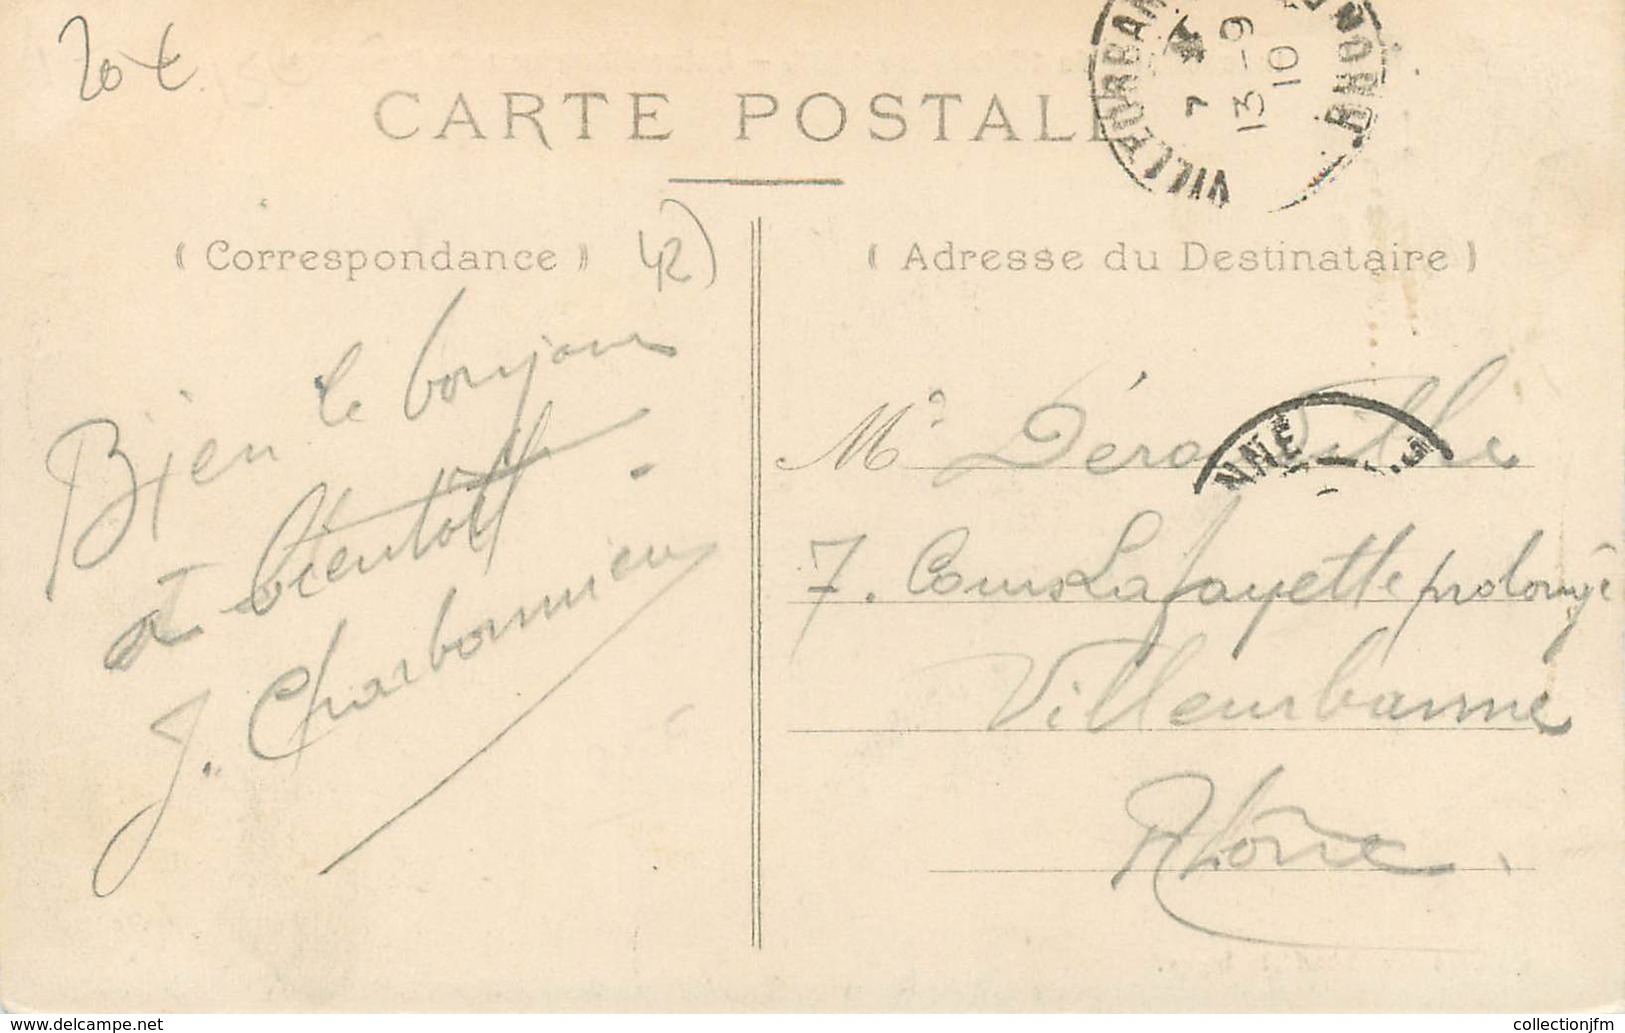 20 €
CARTE POSTALE
VILLEURBANNE RHONE
7
13 - 9
10
( Correspondance )
42)
( Adresse du Destinataire )
Bien le bonjour
à bientôt
J. Charbonnieux
Mr
NNE
7. Cours Lafayette prolongé
Villeurbanne
Rhône
www.delcampe.net
collectionjfm